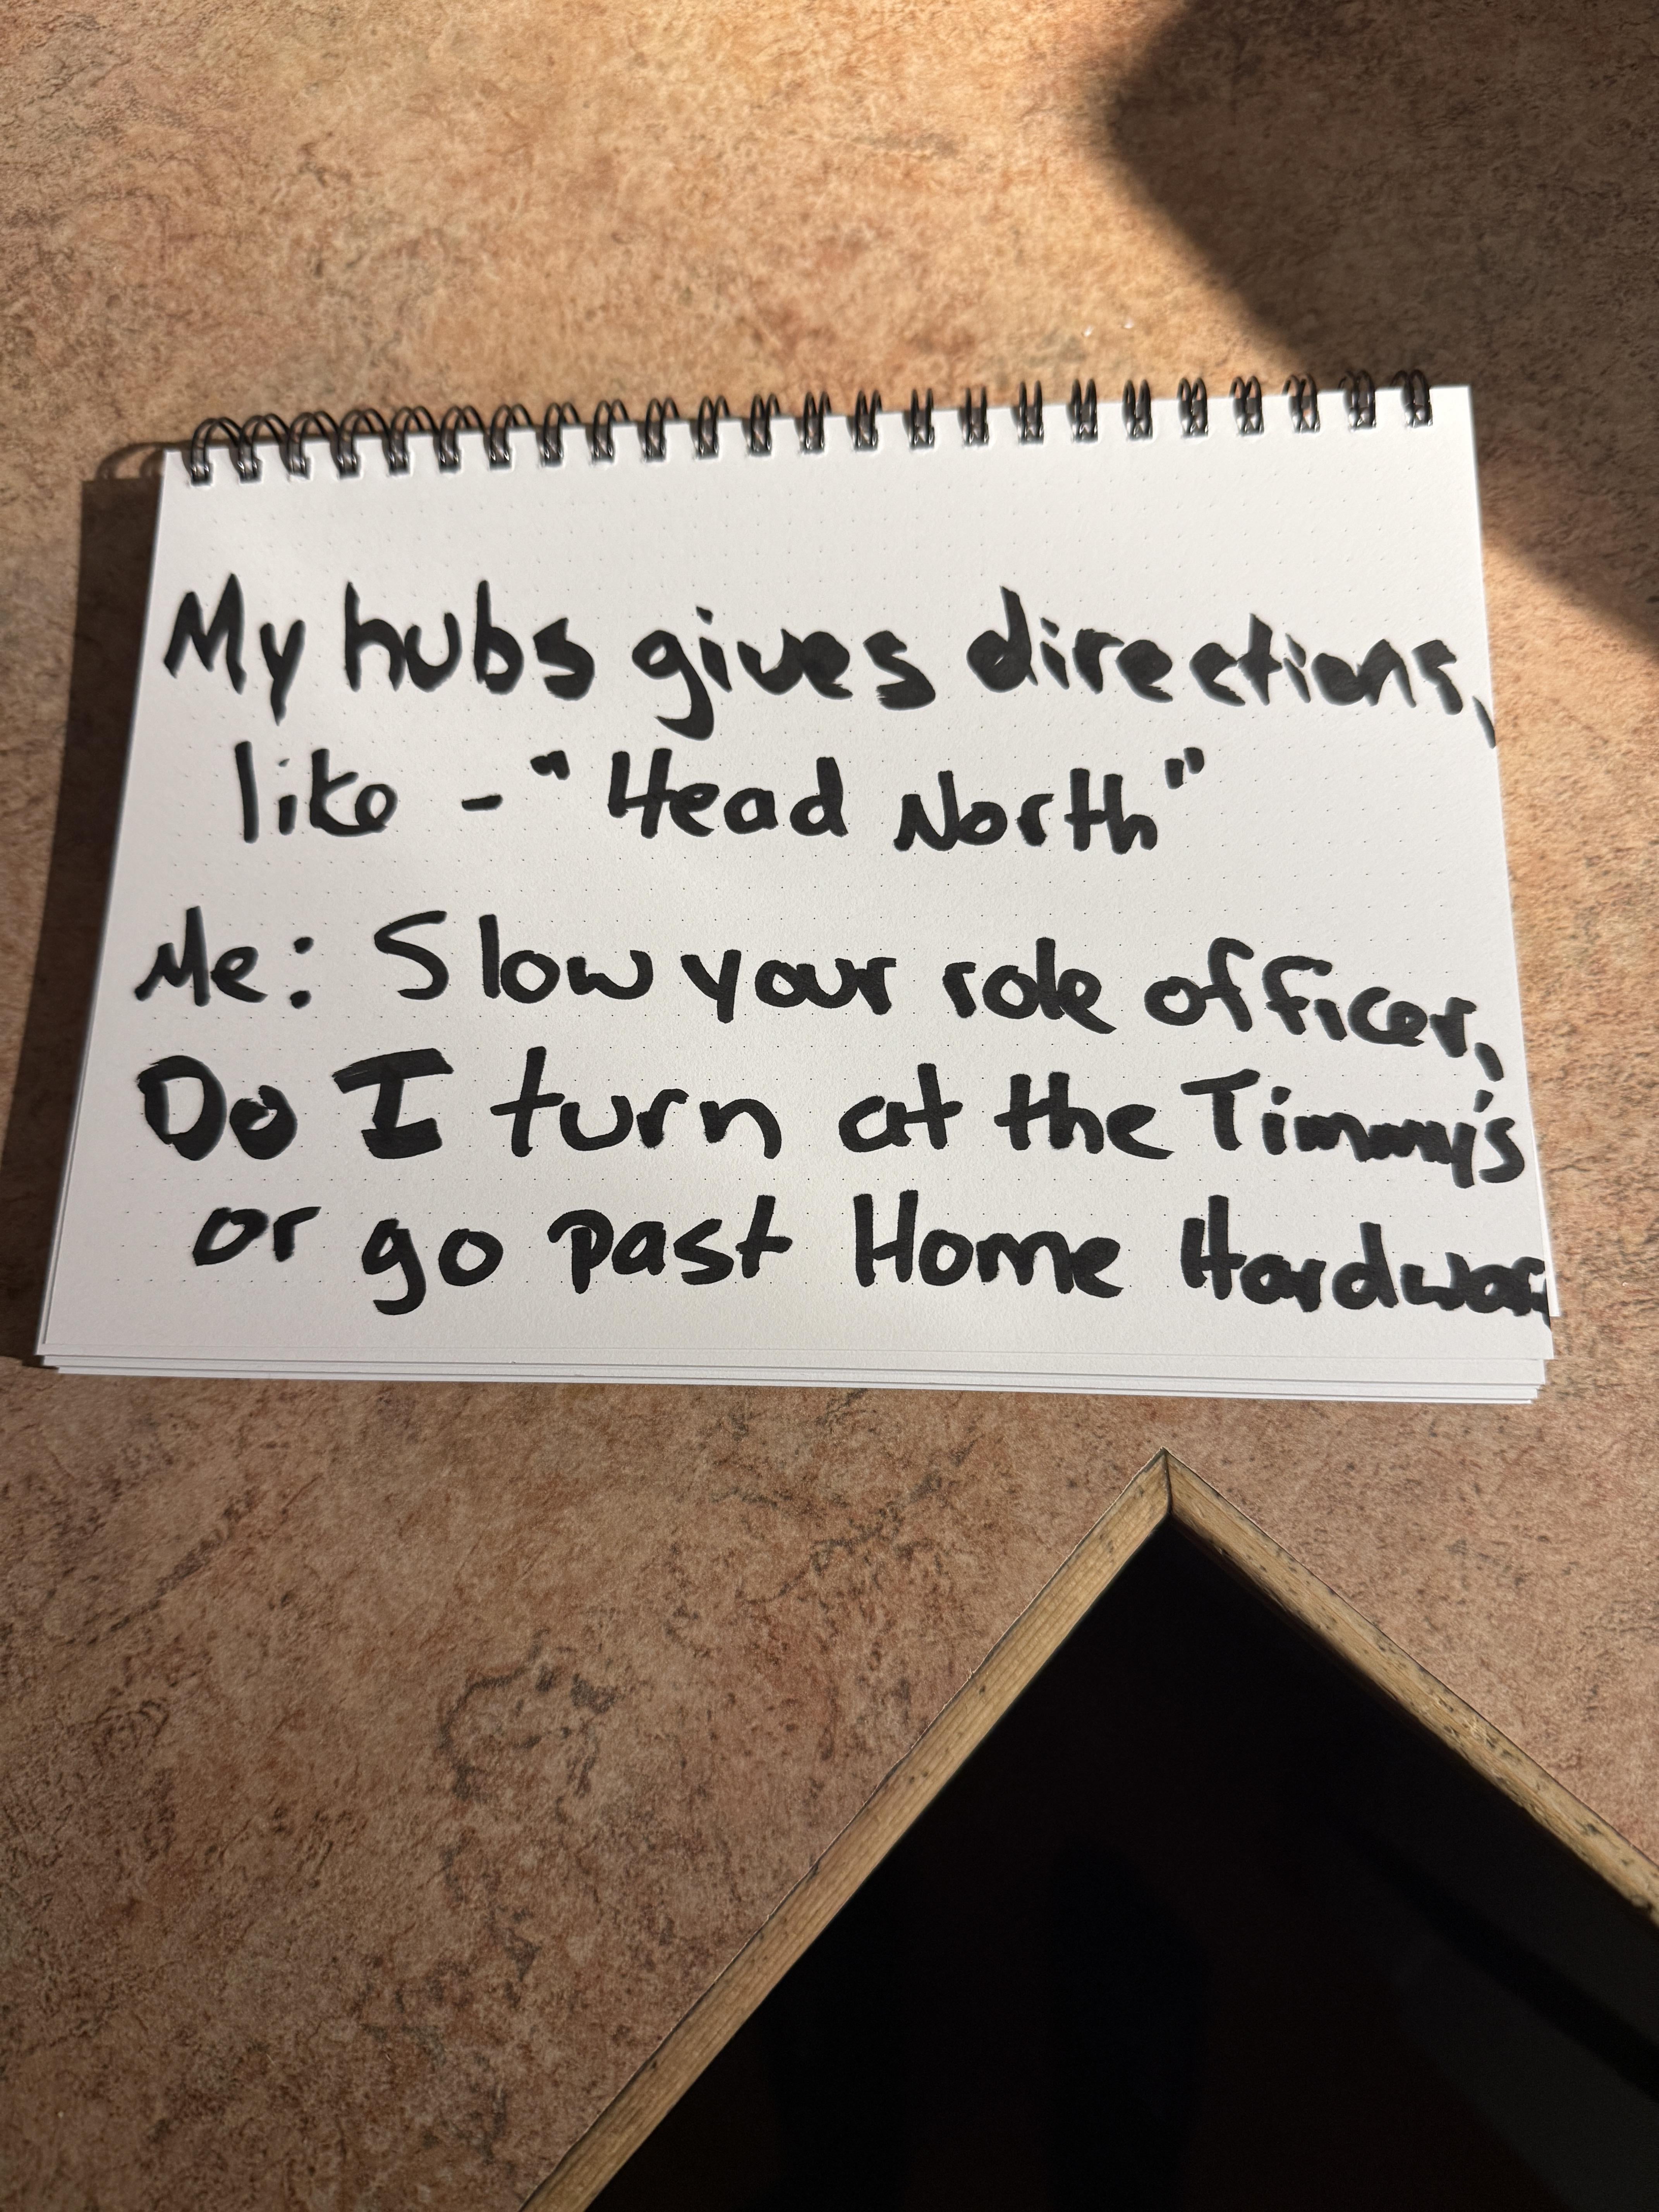 My hubs gives directions,
like - "Head North"
Me: Slow your role officer,
Do I turn at the Timmy's
or go past Home Hardwar